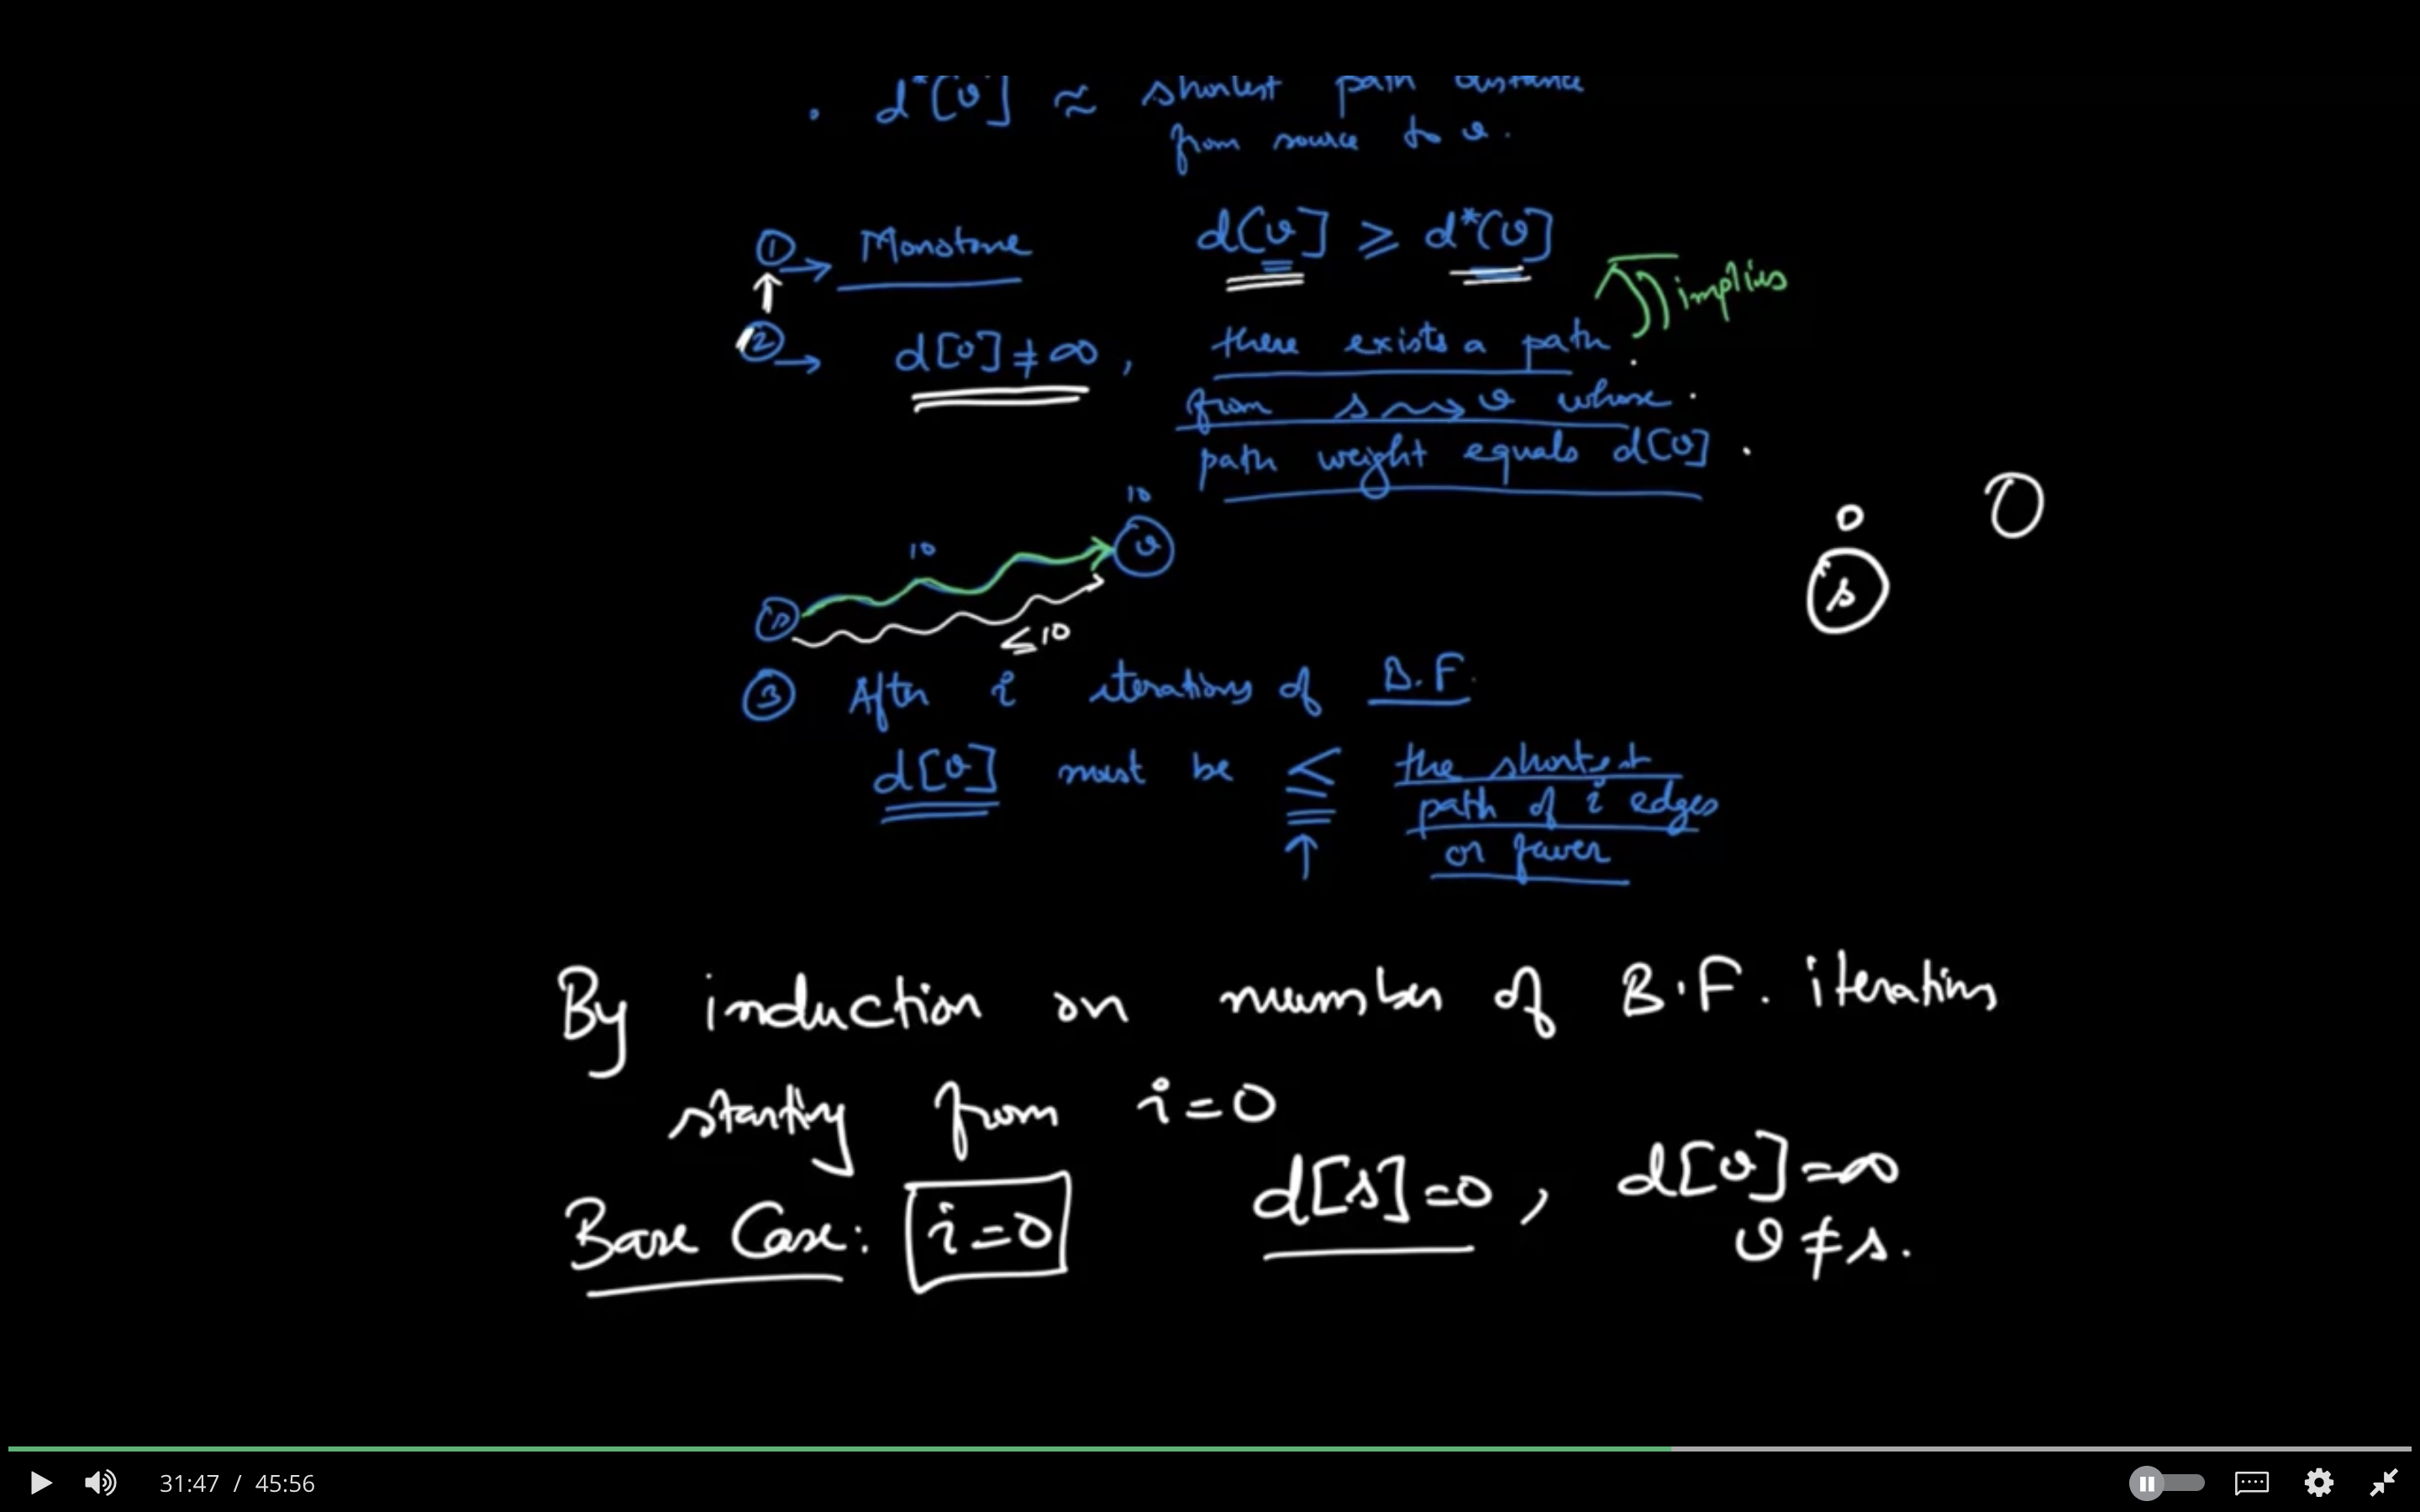 . d*[v] ≈ shortest path distance
from source to v.
① → Monotone d[v] ≥ d*[v]
implies
② → d[v] ≠ ∞, there exists a path.
from s ⇝ v whose.
path weight equals d[v].
10
10
v
s
≤10
0
s
③ After i iterations of B.F.
d[v] must be ≤ the shortest
path of i edges
or fewer
By induction on number of B.F. iterations
starting from i=0
Base Case: i=0 d[s]=0, d[v]=∞
v≠s.
31:47 / 45:56